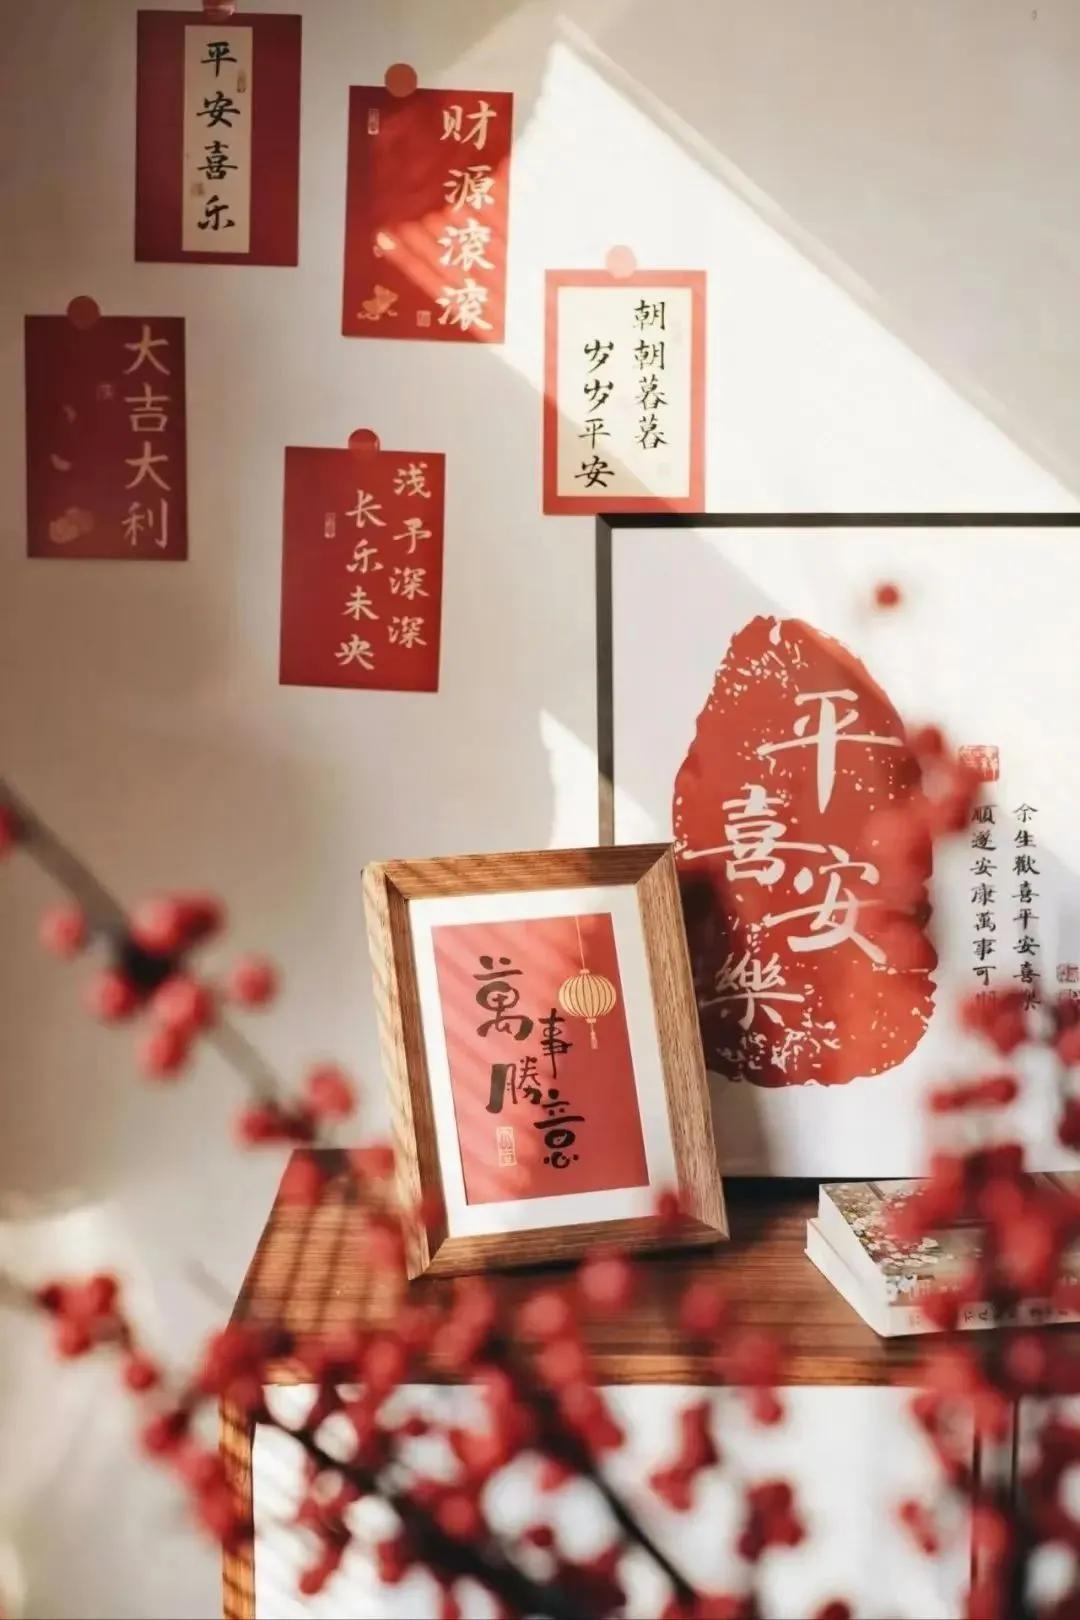 平安喜乐
财源滚滚
朝朝暮暮
岁岁平安
大吉大利
浅予深深
长乐未央
平安
喜樂
余生歡喜平安喜樂
順遂安康萬事可
萬事勝意